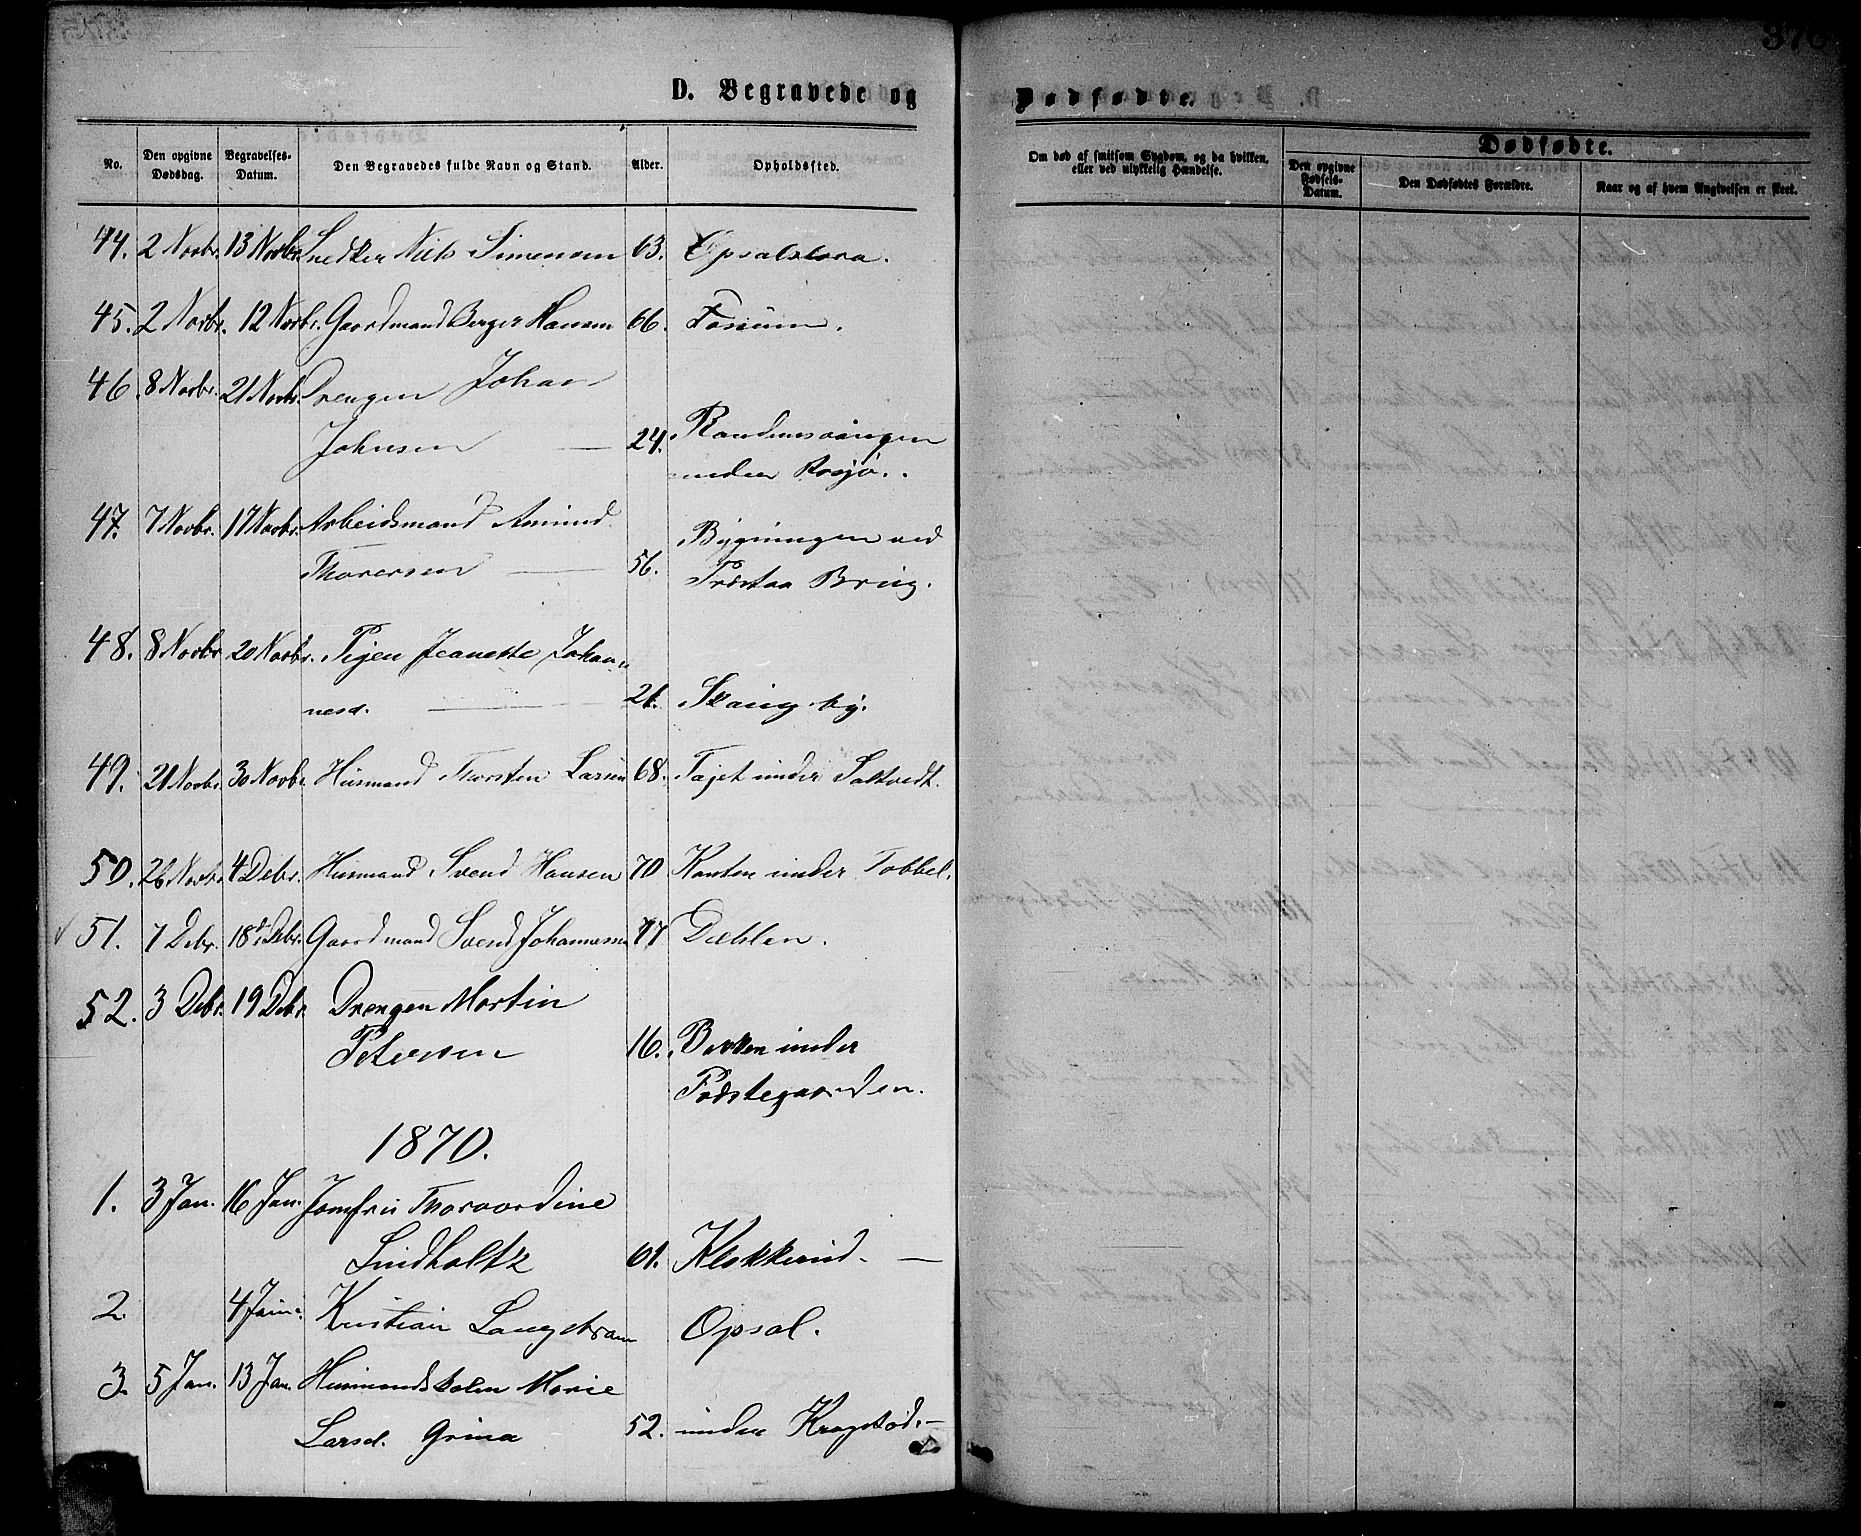 D. Begravede og
Dødfødte.
376
No.
Den opgivne Dødsdag.
Begravelses-Datum.
Den Begravedes fulde Navn og Stand.
Alder.
Opholdssted.
Om død af smitsom Sygdom, og da hvilken,
eller ved ulykkelig Hændelse.
Dødfødte.
Den opgivne Fødsels-Datum.
Den Dødfødtes Forældre.
Naar og af hvem Angivelsen er skeet.
44. 2 Novbr. 13 Novbr. Snedker Niels Simensen 63. Opsal
45. 2 Novbr. 12 Novbr. Gaardmand Berger Hansen 66. Fossum.
46. 8 Novbr. 21 Novbr. Drengen Johan
Johnsen — 24.
under Rosjø.
47. 7 Novbr. 17 Novbr. Arbeidsmand Amund
Thorersen — 56. Bygningen ved
Præstaa Brug.
48. 8 Novbr 20 Novbr. Pigen Jeanette Johan-
nesd. — Skaug by.
49. 21 Novbr. 30 Novbr. Husmand Thorsten Larsen 68. Tajet under Saltvedt.
50. 26 Novbr. 4 Debr. Husmand Svend Hansen 70 Kanten under Tobbel.
51. 7 Debr. 18 Debr. Gaardmand Svend Johannesen 77 Dæhlen.
52. 3 Debr. 19 Debr. Drengen Martin
Petersen 16. Bakken under
Præstegaarden.
1870.
1. 3 Jan. 16 Jan. Jomfru Thorvardine
Lindholtz 61. Klokkerud. —
2. 4 Jan. Kristian Langstram Opsal.
3. 5 Jan. 13 Jan. Husmandskolen Marie
Larsd. Grina 52. under Kragstad. —